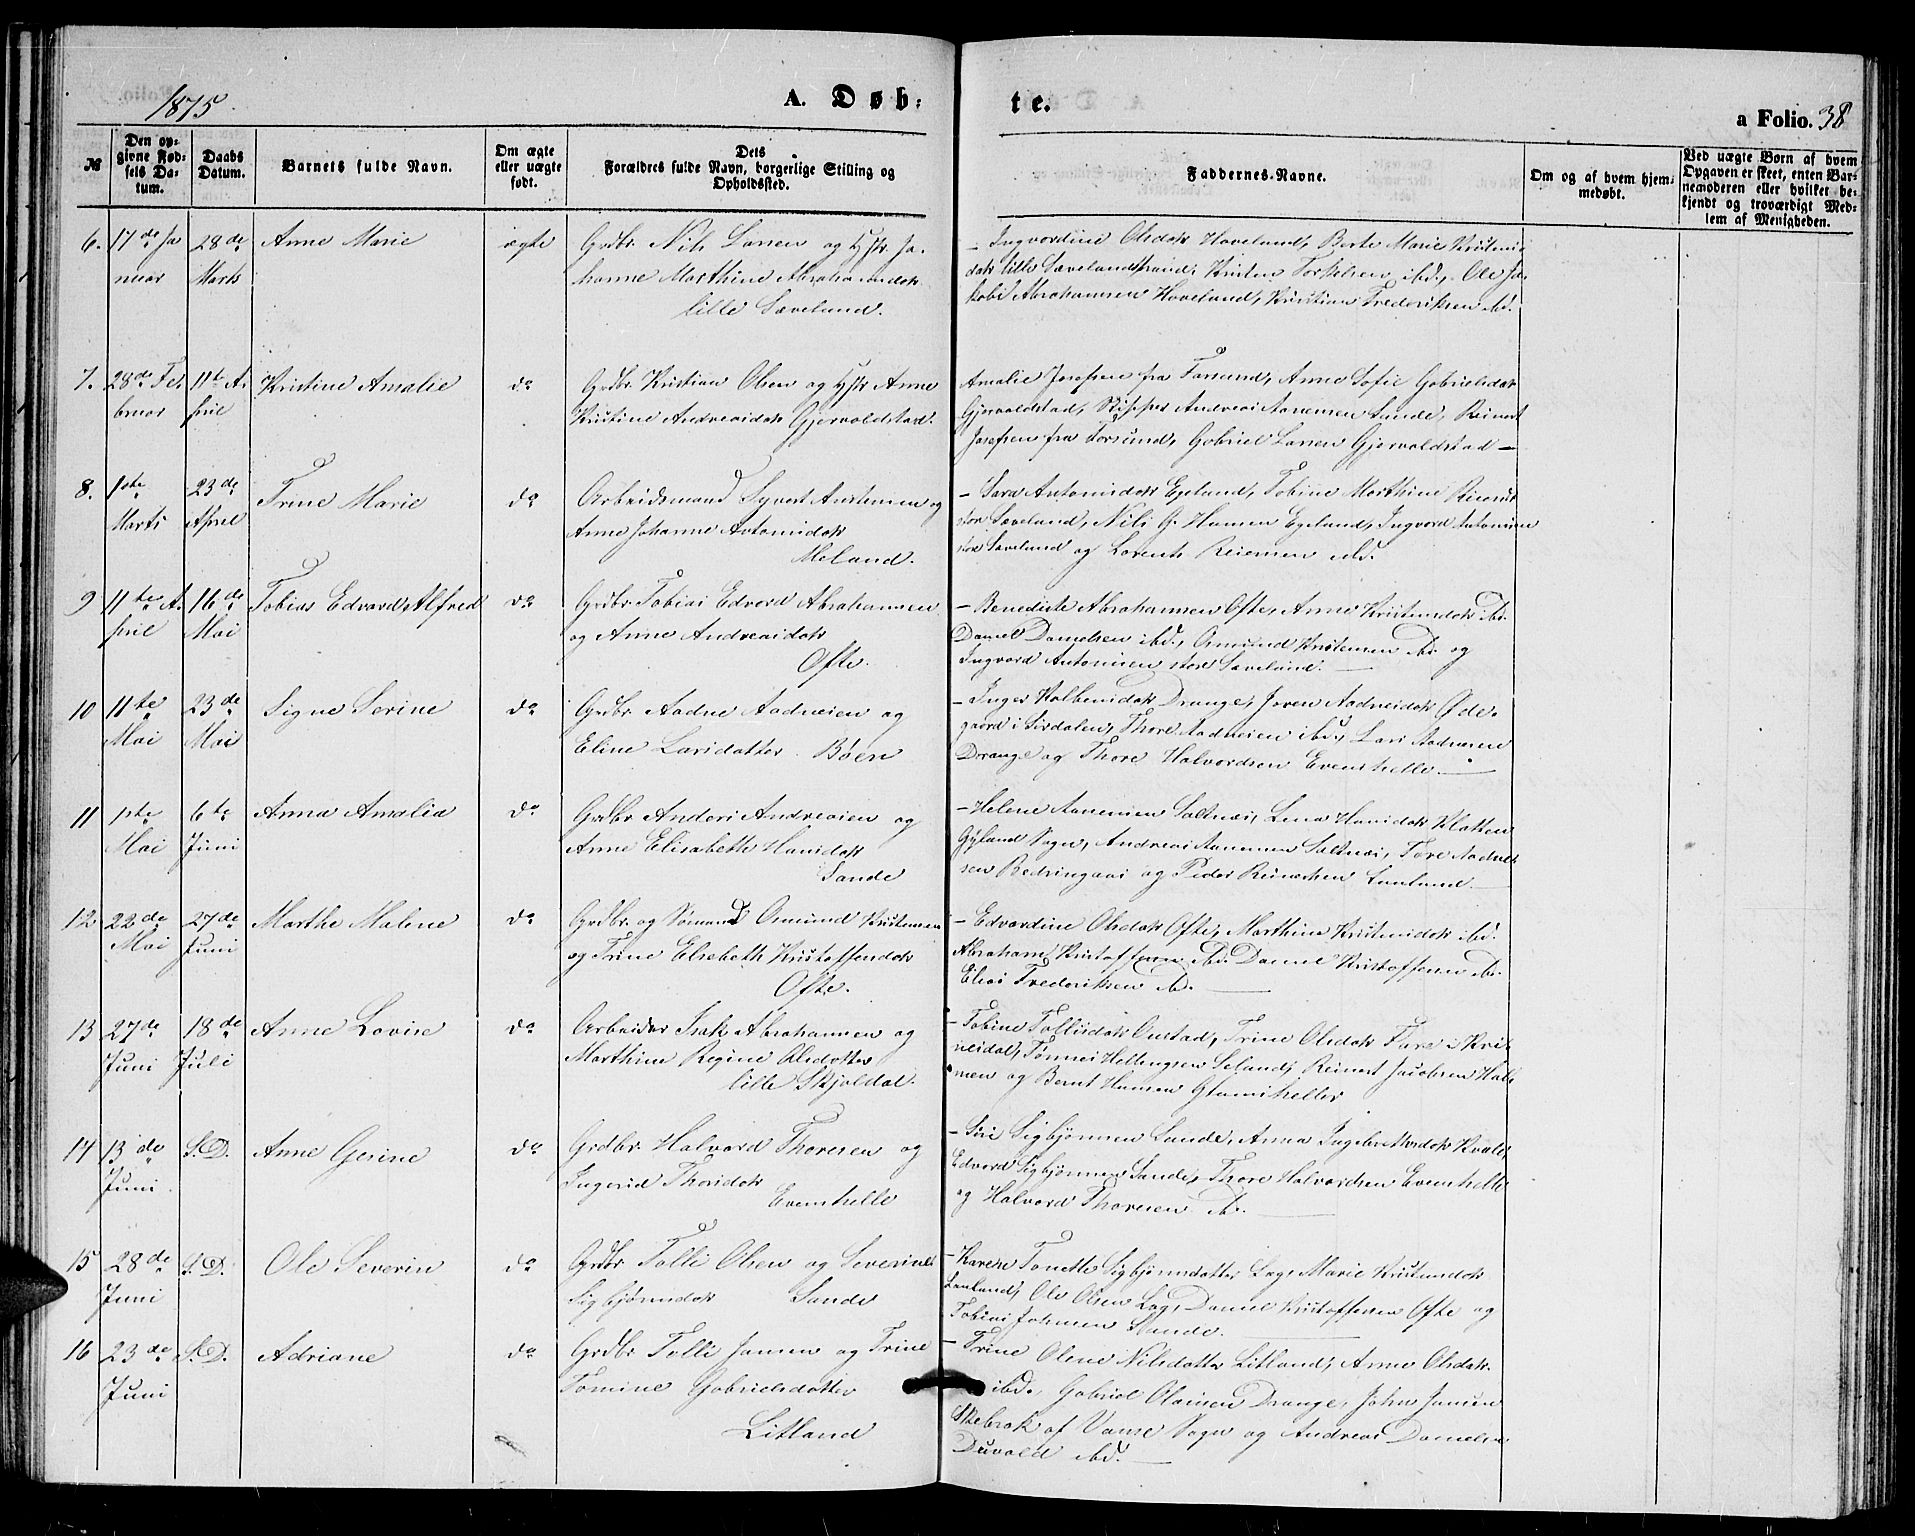 1875.
A. Døb:
te.
a Folio. 38
№
Den op-
givne Fød-
sels Da-
tum.
Daabs
Datum.
Barnets fulde Navn.
Om ægte
eller uægte
født.
Dets
Forældres fulde Navn, borgerlige Stilling og
Opholdssted.
Faddernes-Navne.
Om og af hvem hjem-
medøbt.
Ved uægte Børn af hvem
Opgaven er skeet, enten Bar-
nemoderen eller hvilket be-
kjendt og troværdigt Med-
lem af Menigheden.
6. 17de Ja 28de Anne Marie ægte Grdbr. Nils Larsen og Hstr Jo-
nuar Marts hanne Marthine Abrahamsdatr
lille Sæveland.
– Ingvordine Olsdatr Hoveland, Berte Marie Kristens
datr lille Sævelandstrand, Kristen Torkelsen ibd., Ole Ja-
kobs Abrahamsen Hoveland, Kristian Frederiksen ibd.
7. 28de Fe- 11te A- Kristine Amalie do Grdbr. Kristian Olsen og Hstr Anne
bruar pril Kristine Andreasdatr Gjervoldstad.
Amalie Josefsen fra Farsund, Anne Sofie Gabrielsdatr
Gjervoldstad, Skipper Andreas Aanensen Sande, Reinert
Josefsen fra Farsund, Gabriel Larsen Gjervoldstad –
8. 1ste 23de Trine Marie do Arbeidsmand Syvert Anstensen og
Marts April Anne Johanne Antonisdatr
Meland.
– Sara Antonisdatr Egeland, Tobine Marthine
stor Sæveland, Nils G. Hansen Egeland, Ingvord Antonisen
stor Sæveland og Lorents Reiersen ibd.
9 11te A- 16de Tobias Edvard Alfred do Grdbr. Tobias Edvord Abrahamsen
pril Mai og Anne Andreasdatr
Ofte.
– Benedicte Abrahamsen Ofte, Anne Kristensdatr ibd.
Daniel Danielsen ibd., Osmund Kristensen ibd. og
Ingvord Antonisen stor Sæveland. –
10 11te 23de Signe Serine do Grdbr. Aadne Aadnesen og
Mai Mai Eline Larsdatter Bøen
– Inger Kolbensdatr Drange, Joren Aadnesdatr Øde-
gaard i Sirdalen, Thore Aadnesen ibd., Lars Aadnesen
Drange og Thore Halvordsen Evenshelle. –
11 1ste 6te Anna Amalia do Grdbr. Anders Andreasen og
Mai Juni Anne Elisabeth Hansdatr
Sande
– Helene Aanensen Saltnæs, Lena Hansdatr Klatten
Gyland Sogn, Andreas Aanensen Saltnæs, Tore Aadne-
sen Bedringaas og Peder Reinertsen Lauland. –
12 22de 27de Marthe Malene do Grdbr. og Sømand Osmund Kristensen
Mai Juni og Trine Elsebeth Kristoffersdatr
Ofte.
– Edvardine Olsdatr Ofte, Marthine Kristensdatr ibd.
Abraham Kristoffersen ibd. Daniel Kristoffersen ibd.
Elias Frederiksen ibd. –
13 27de 18de Anne Lovise do Arbeider Isak Abrahamsen og
Juni Juli Marthine Regine Olsdatter
lille Skjoldal.
– Tobine Tollisdatr Omstad, Trine Olsdatr Fare i Kvi-
nesdal, Tønnes Hellingsen Seland, Reinert Jacobsen
og Bernt Hansen Glamsheller
14 13de S.D. Anne Gesine do Grdbr. Halvord Thoresen og
Juni. Ingerid Thorsdatr
Evenshelle
– Siri Sigbjørnsen Sande, Anna Ingebretsdatr Kvale
Edvard Sigbjørnsen Sande, Thore Halvordsen Evenshelle
og Halvord Thoresen ibd. –
15 28de S.D. Ole Severin do Grdbr. Tolli Olsen og Severine
Juni Sigbjørnsdatr Sande
– Karen Tonette Sigbjørnsdatter Log, Marie Kristensdatr
Lauland, Ole Olsen Log, Daniel Kristoffersen Ofte og
Tobias Johnsen Sande. –
16 23de S.D. Adriane do Grdbr. Tolli Jansen og Trine
Juni Tomine Gabrielsdatter
Litland
– Trine Olene Nilsdatter Litland, Anne Olsdatr
ibd., Gabriel Olaisen Drange, John Jansen
Skebrok af Vanse Sogn og Andreas Danielsen
Duvold ibd. –